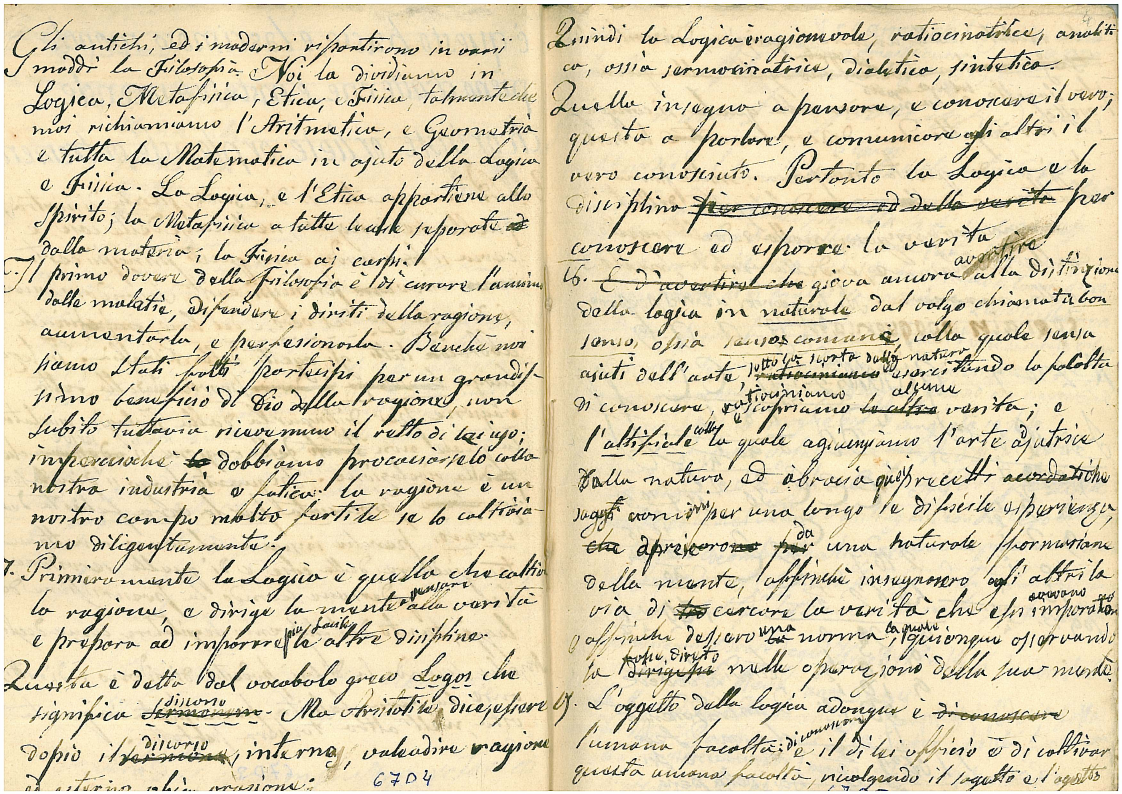 Gli antichi, ed i moderni ripartirono in varii
moddi la Filosofia. Noi la dividiamo in
Logica, Metafisica, Etica, e Fisica, talmente che
noi richiamiamo l'Aritmetica, e Geometria
e tutta la Matematica in ajuto della Logica
e Fisica. La Logica, e l'Etica appartiene allo
spirito; la Metafisica a tutte le cose separate
dalla materia; la Fisica ai corpi.
Il primo dovere della Filosofia è di curare l'animo
dalle malatie, difendere i diriti della ragione,
aumentarla, e perfesionarla. Benchè noi
siamo stati fatti partecipi per un grandis-
simo beneficio di Dio della ragione, non
subito tuttavia ricevemmo il retto di lei uso;
imperciochè dobbiamo procaciarselo colla
nostra industria e fatica: la ragione è un
nostro campo molto fertile se lo coltivia-
mo diligentemente.
7. Primieramente la Logica è quella che coltiva
la ragione, e dirige la mente alla verità
e prepara ad imparare più facil le altre disipline.
Questa è detta dal vocabolo greco Logos che
significa sermonem discorso. Ma Aristotile dice essere
dopio il sermone discorso, interno, valeadire ragione
ed esterno, ossia orazione.
6704
4
Quindi la Logica è ragionevole, ratiocinatrice, analiti-
ca, ossia sermocinatrice, dialetica, sintetica.
Quella insegna a pensare, e conoscere il vero;
questa a parlare, e comunicare agli altri il
vero conosciuto. Pertanto la Logica è la
disciplina per conoscere ed della verità per
conoscere ed esporre la verità
avertire
16. È d'avertire che giova ancora alla distinzione
della logica in naturale dal volgo chiamata bon
senso, ossia senso comune, colla quale senza
ajuti dell'arte, sotto la scorta della natura esercitando la facoltà
di conoscere, ratiociniamo e scopriamo le altre alcune verità; e
l'artificiale colla quale agiungiamo l'arte ajutrice
dalla natura, ed abracia que' precetti acordati che
saggi uomini per una longa e dificile esperienza,
che apresero da una naturale formazione
della mente, affinchè insegnassero agli altri la
via di cercare la verità che essi avevano imparato
e affinche dessero una norma, la quale quiunque osservando
la fosse direto nelle operazioni della sua mente.
17. L'oggetto della logica adonque è di conoscere
l'umana facoltà di conoscere: e il di lei officio è di coltivar
questa umana facoltà, rivolgendo il sogetto e l'ogetto